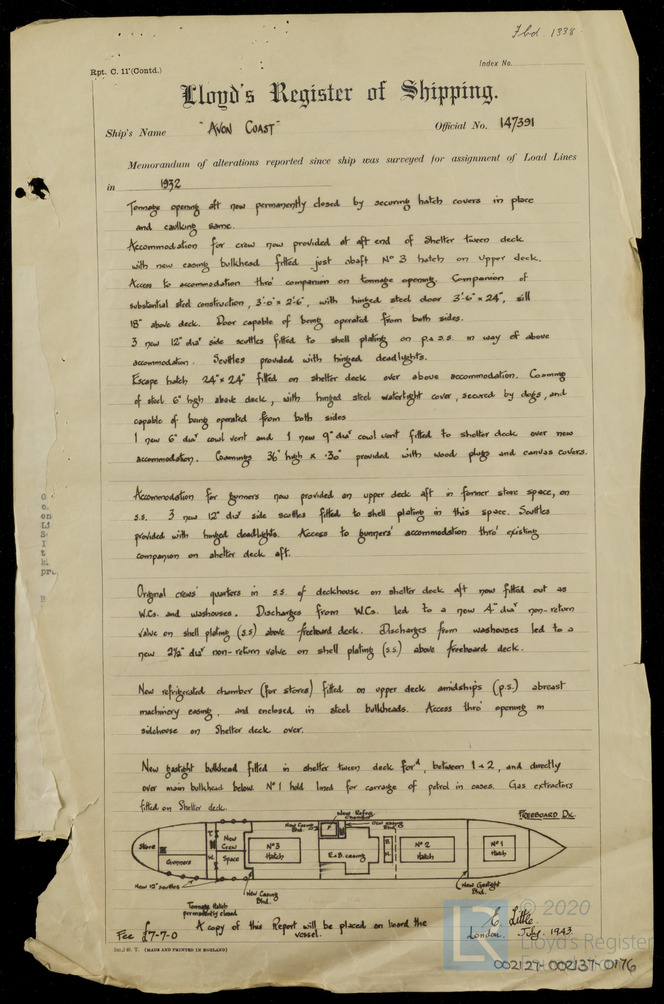 Fbd. 1338
Rpt. C. 11 (Contd.)
Index No.
Lloyd's Register of Shipping.
Ship's Name "AVON COAST" Official No. 147391
Memorandum of alterations reported since ship was surveyed for assignment of Load Lines
in 1932
Tonnage opening aft now permanently closed by securing hatch covers in place
and caulking same.
Accommodation for crew now provided at aft end of shelter tween deck
with new casing bulkhead fitted just abaft No 3 hatch on upper deck.
Access to accommodation thro' companion on tonnage opening. Companion of
substantial steel construction, 3'-0" x 2'-6", with hinged steel door 3'-6" x 24", sill
18" above deck. Door capable of being operated from both sides.
3 new 12" diar side scuttles fitted to shell plating on p & s.s. in way of above
accommodation. Scuttles provided with hinged deadlights.
Escape hatch 24" x 24" fitted on shelter deck over above accommodation. Coaming
of steel 6" high above deck, with hinged steel watertight cover, secured by dogs, and
capable of being operated from both sides
1 new 6" diar cowl vent and 1 new 9" diar cowl vent fitted to shelter deck over new
accommodation. Coamings 36" high x .30" provided with wood plugs and canvas covers.
Accommodation for gunners now provided on upper deck aft in former store space, on
s.s. 3 new 12" diar side scuttles fitted to shell plating in this space. Scuttles
provided with hinged deadlights. Access to gunners' accommodation thro' existing
companion on shelter deck aft.
Original crews' quarters in s.s. of deckhouse on shelter deck aft now fitted out as
W.Cs. and washouses. Discharges from W.Cs. led to a new 4" diar non-return
valve on shell plating (s.s) above freeboard deck. Discharges from washouses led to a
new 2½" diar non-return valve on shell plating (s.s.) above freeboard deck.
New refrigerated chamber (for stores) fitted on upper deck amidships (p.s.) abreast
machinery casing, and enclosed in steel bulkheads. Access thro' opening in
sidehouse on Shelter deck over.
New gastight bulkhead fitted in shelter tween deck ford, between 1 & 2, and directly
over main bulkhead below. No 1 hold lined for carriage of petrol in cases. Gas extractors
fitted on Shelter deck.
FREEBOARD DK.
New Refrig. Chamber
New Casing Bhd.
Store
Gunners
T.
W.
New Crew Space
No 3 Hatch
E & B casing
No 2 Hatch
No 1 Hatch
New 12" scuttles
New Casing Bhd.
New Gastight Bhd.
Tonnage Hatch permanently closed
Fee £7-7-0 A copy of this Report will be placed on board the
vessel.
E. Little.
London. July. 1943.
(MADE AND PRINTED IN ENGLAND)
© 2020
Lloyd's Register
002127-002137-0176